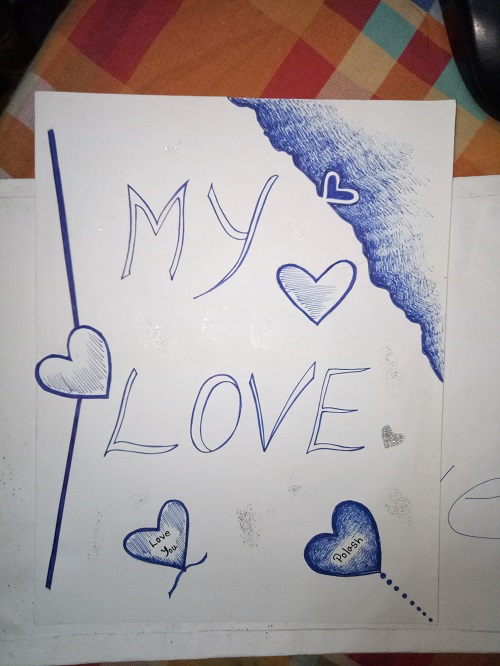 MY
LOVE
Love
You
Polash